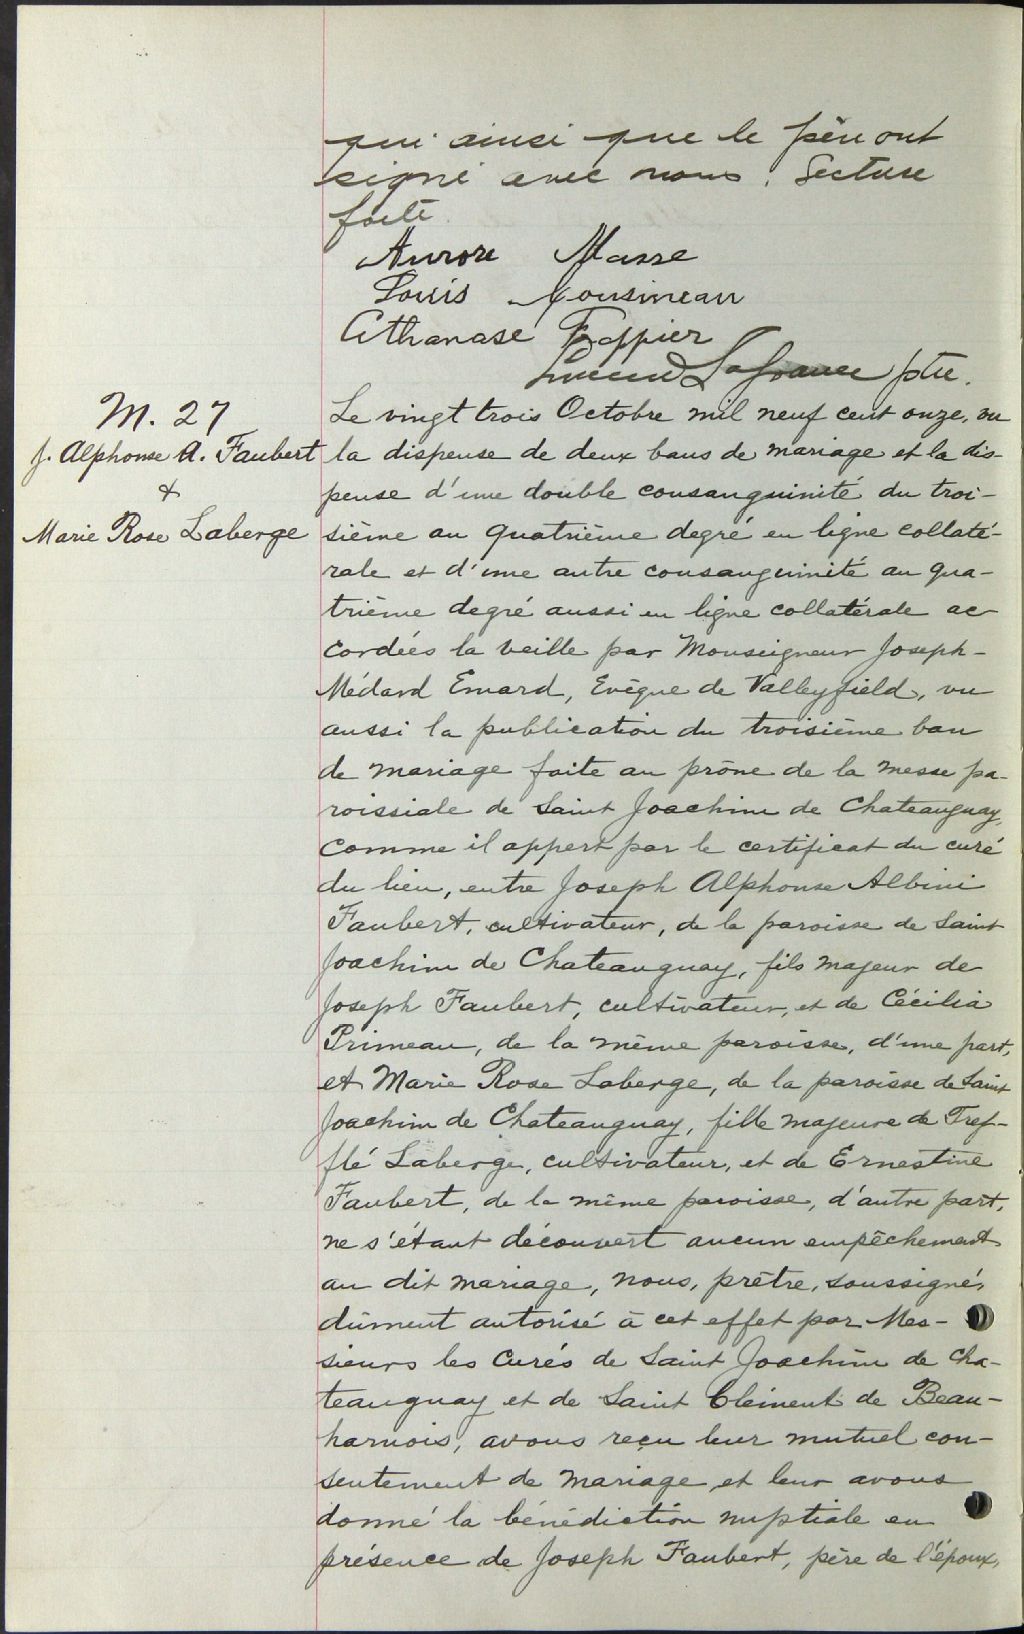 qui ainsi que le père ont
signé avec nous. Lecture
faite.
Aurore Masse
Louis Cousineau
Athanase Peppier
Lafrance ptre.
M. 27
J. Alphonse A. Faubert
&
Marie Rose Laberge
Le vingt trois Octobre mil neuf cent onze, vu
la dispense de deux bans de mariage et la dis-
pense d'une double consanguinité du troi-
sième au quatrième degré en ligne collaté-
rale et d'une autre consanguinité au qua-
trième degré aussi en ligne collatérale ac-
cordées la veille par Monseigneur Joseph-
Médard Emard, Evêque de Valleyfield, vu
aussi la publication du troisième ban
de mariage faite au prône de la messe pa-
roissiale de Saint Joachim de Chateauguay,
comme il appert par le certificat du curé
du lieu, entre Joseph Alphonse Albini
Faubert, cultivateur, de la paroisse de Saint
Joachim de Chateauguay, fils majeur de
Joseph Faubert, cultivateur, et de Cécilia
Primeau, de la même paroisse, d'une part,
et Marie Rose Laberge, de la paroisse de Saint
Joachim de Chateauguay, fille majeure de Tref-
flé Laberge, cultivateur, et de Ernestine
Faubert, de la même paroisse, d'autre part,
ne s'étant découvert aucun empêchement
au dit mariage, nous, prêtre, soussigné,
dûment autorisé à cet effet par Mes-
sieurs les Curés de Saint Joachim de Cha-
teauguay et de Saint Clément de Beau-
harnois, avons reçu leur mutuel con-
sentement de mariage et leur avons
donné la bénédiction nuptiale en
présence de Joseph Faubert, père de l'époux,